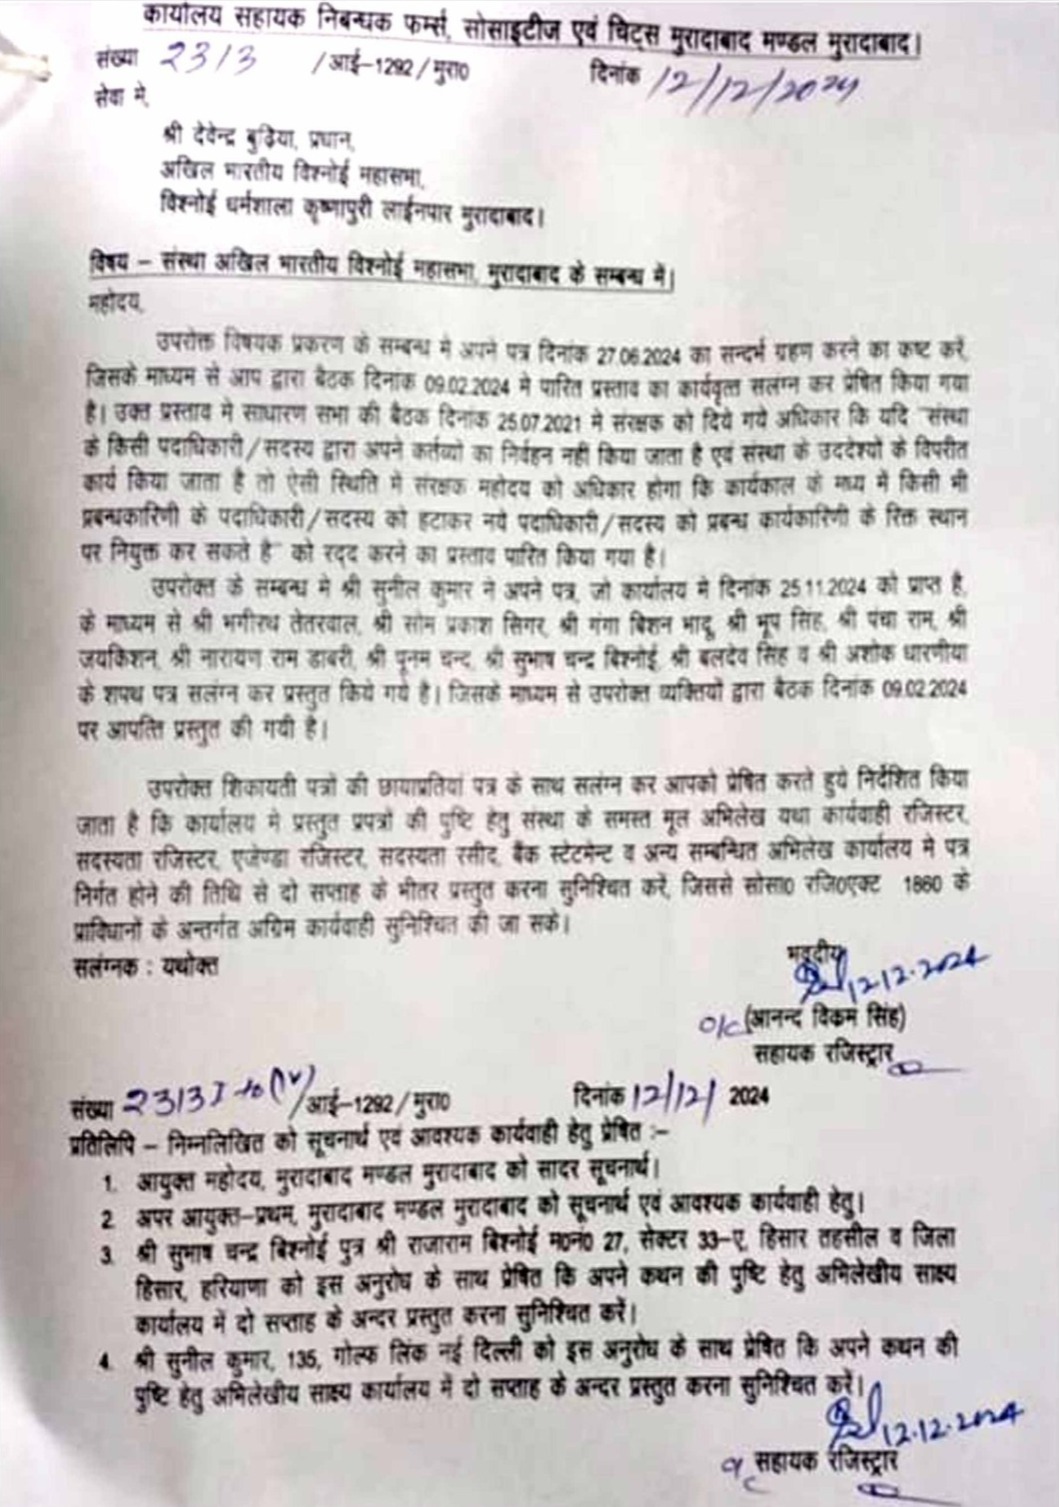 कार्यालय सहायक निबन्धक फर्म्स, सोसाइटीज एवं चिट्स मुरादाबाद मण्डल मुरादाबाद।
संख्या 2313 /आई–1292/मुरा0 दिनांक 12/12/2024
सेवा मे,
श्री देवेन्द्र बुढ़िया, प्रधान,
अखिल भारतीय विश्नोई महासभा,
विश्नोई धर्मशाला कृष्णापुरी लाईनपार मुरादाबाद।
विषय – संस्था अखिल भारतीय विश्नोई महासभा, मुरादाबाद के सम्बन्ध में।
महोदय,
उपरोक्त विषयक प्रकरण के सम्बन्ध मे अपने पत्र दिनांक 27.06.2024 का सन्दर्भ ग्रहण करने का कष्ट करें,
जिसके माध्यम से आप द्वारा बैठक दिनांक 09.02.2024 मे पारित प्रस्ताव का कार्यवृत्त सलंग्न कर प्रेषित किया गया
है। उक्त प्रस्ताव मे साधारण सभा की बैठक दिनांक 25.07.2021 मे संरक्षक को दिये गये अधिकार कि यदि "संस्था
के किसी पदाधिकारी/सदस्य द्वारा अपने कर्तव्यों का निर्वहन नही किया जाता है एवं संस्था के उददेश्यों के विपरीत
कार्य किया जाता है तो ऐसी स्थिति मे संरक्षक महोदय को अधिकार होगा कि कार्यकाल के मध्य में किसी भी
प्रबन्धकारिणी के पदाधिकारी/सदस्य को हटाकर नये पदाधिकारी/सदस्य को प्रबन्ध कार्यकारिणी के रिक्त स्थान
पर नियुक्त कर सकते है" को रद्द करने का प्रस्ताव पारित किया गया है।
उपरोक्त के सम्बन्ध मे श्री सुनील कुमार ने अपने पत्र, जो कार्यालय मे दिनांक 25.11.2024 को प्राप्त है,
के माध्यम से श्री भगीरथ तेतरवाल, श्री सोम प्रकाश सिगर, श्री गंगा बिशन भादू, श्री भूप सिंह, श्री पंचा राम, श्री
जयकिशन, श्री नारायण राम डाबरी, श्री पूनम चन्द, श्री सुभाष चन्द्र बिश्नोई, श्री बलदेव सिंह व श्री अशोक धारणीया
के शपथ पत्र सलंग्न कर प्रस्तुत किये गये है। जिसके माध्यम से उपरोक्त व्यक्तियों द्वारा बैठक दिनांक 09.02.2024
पर आपत्ति प्रस्तुत की गयी है।
उपरोक्त शिकायती पत्रों की छायाप्रतियां पत्र के साथ सलंग्न कर आपको प्रेषित करते हुये निर्देशित किया
जाता है कि कार्यालय मे प्रस्तुत प्रपत्रों की पुष्टि हेतु संस्था के समस्त मूल अभिलेख यथा कार्यवाही रजिस्टर,
सदस्यता रजिस्टर, एजेण्डा रजिस्टर, सदस्यता रसीद, बैंक स्टेटमेन्ट व अन्य सम्बन्धित अभिलेख कार्यालय मे पत्र
निर्गत होने की तिथि से दो सप्ताह के भीतर प्रस्तुत करना सुनिश्चित करें, जिससे सोसा0 रजि0एक्ट 1860 के
प्राविधानों के अन्तर्गत अग्रिम कार्यवाही सुनिश्चित की जा सके।
सलंग्नक : यथोक्त
भवदीय
12.12.2024
o/c (आनन्द विकम सिंह)
सहायक रजिस्ट्रार
संख्या 2313 I to (IV)/आई–1292/मुरा0 दिनांक 12/12/ 2024
प्रतिलिपि – निम्नलिखित को सूचनार्थ एवं आवश्यक कार्यवाही हेतु प्रेषित :–
1. आयुक्त महोदय, मुरादाबाद मण्डल मुरादाबाद को सादर सूचनार्थ।
2. अपर आयुक्त–प्रथम, मुरादाबाद मण्डल मुरादाबाद को सूचनार्थ एवं आवश्यक कार्यवाही हेतु।
3. श्री सुभाष चन्द्र बिश्नोई पुत्र श्री राजाराम बिश्नोई म0नं0 27, सेक्टर 33–ए, हिसार तहसील व जिला
हिसार, हरियाणा को इस अनुरोध के साथ प्रेषित कि अपने कथन की पुष्टि हेतु अभिलेखीय साक्ष्य
कार्यालय में दो सप्ताह के अन्दर प्रस्तुत करना सुनिश्चित करें।
4. श्री सुनील कुमार, 135, गोल्फ लिंक नई दिल्ली को इस अनुरोध के साथ प्रेषित कि अपने कथन की
पुष्टि हेतु अभिलेखीय साक्ष्य कार्यालय में दो सप्ताह के अन्दर प्रस्तुत करना सुनिश्चित करें।
12.12.2024
सहायक रजिस्ट्रार